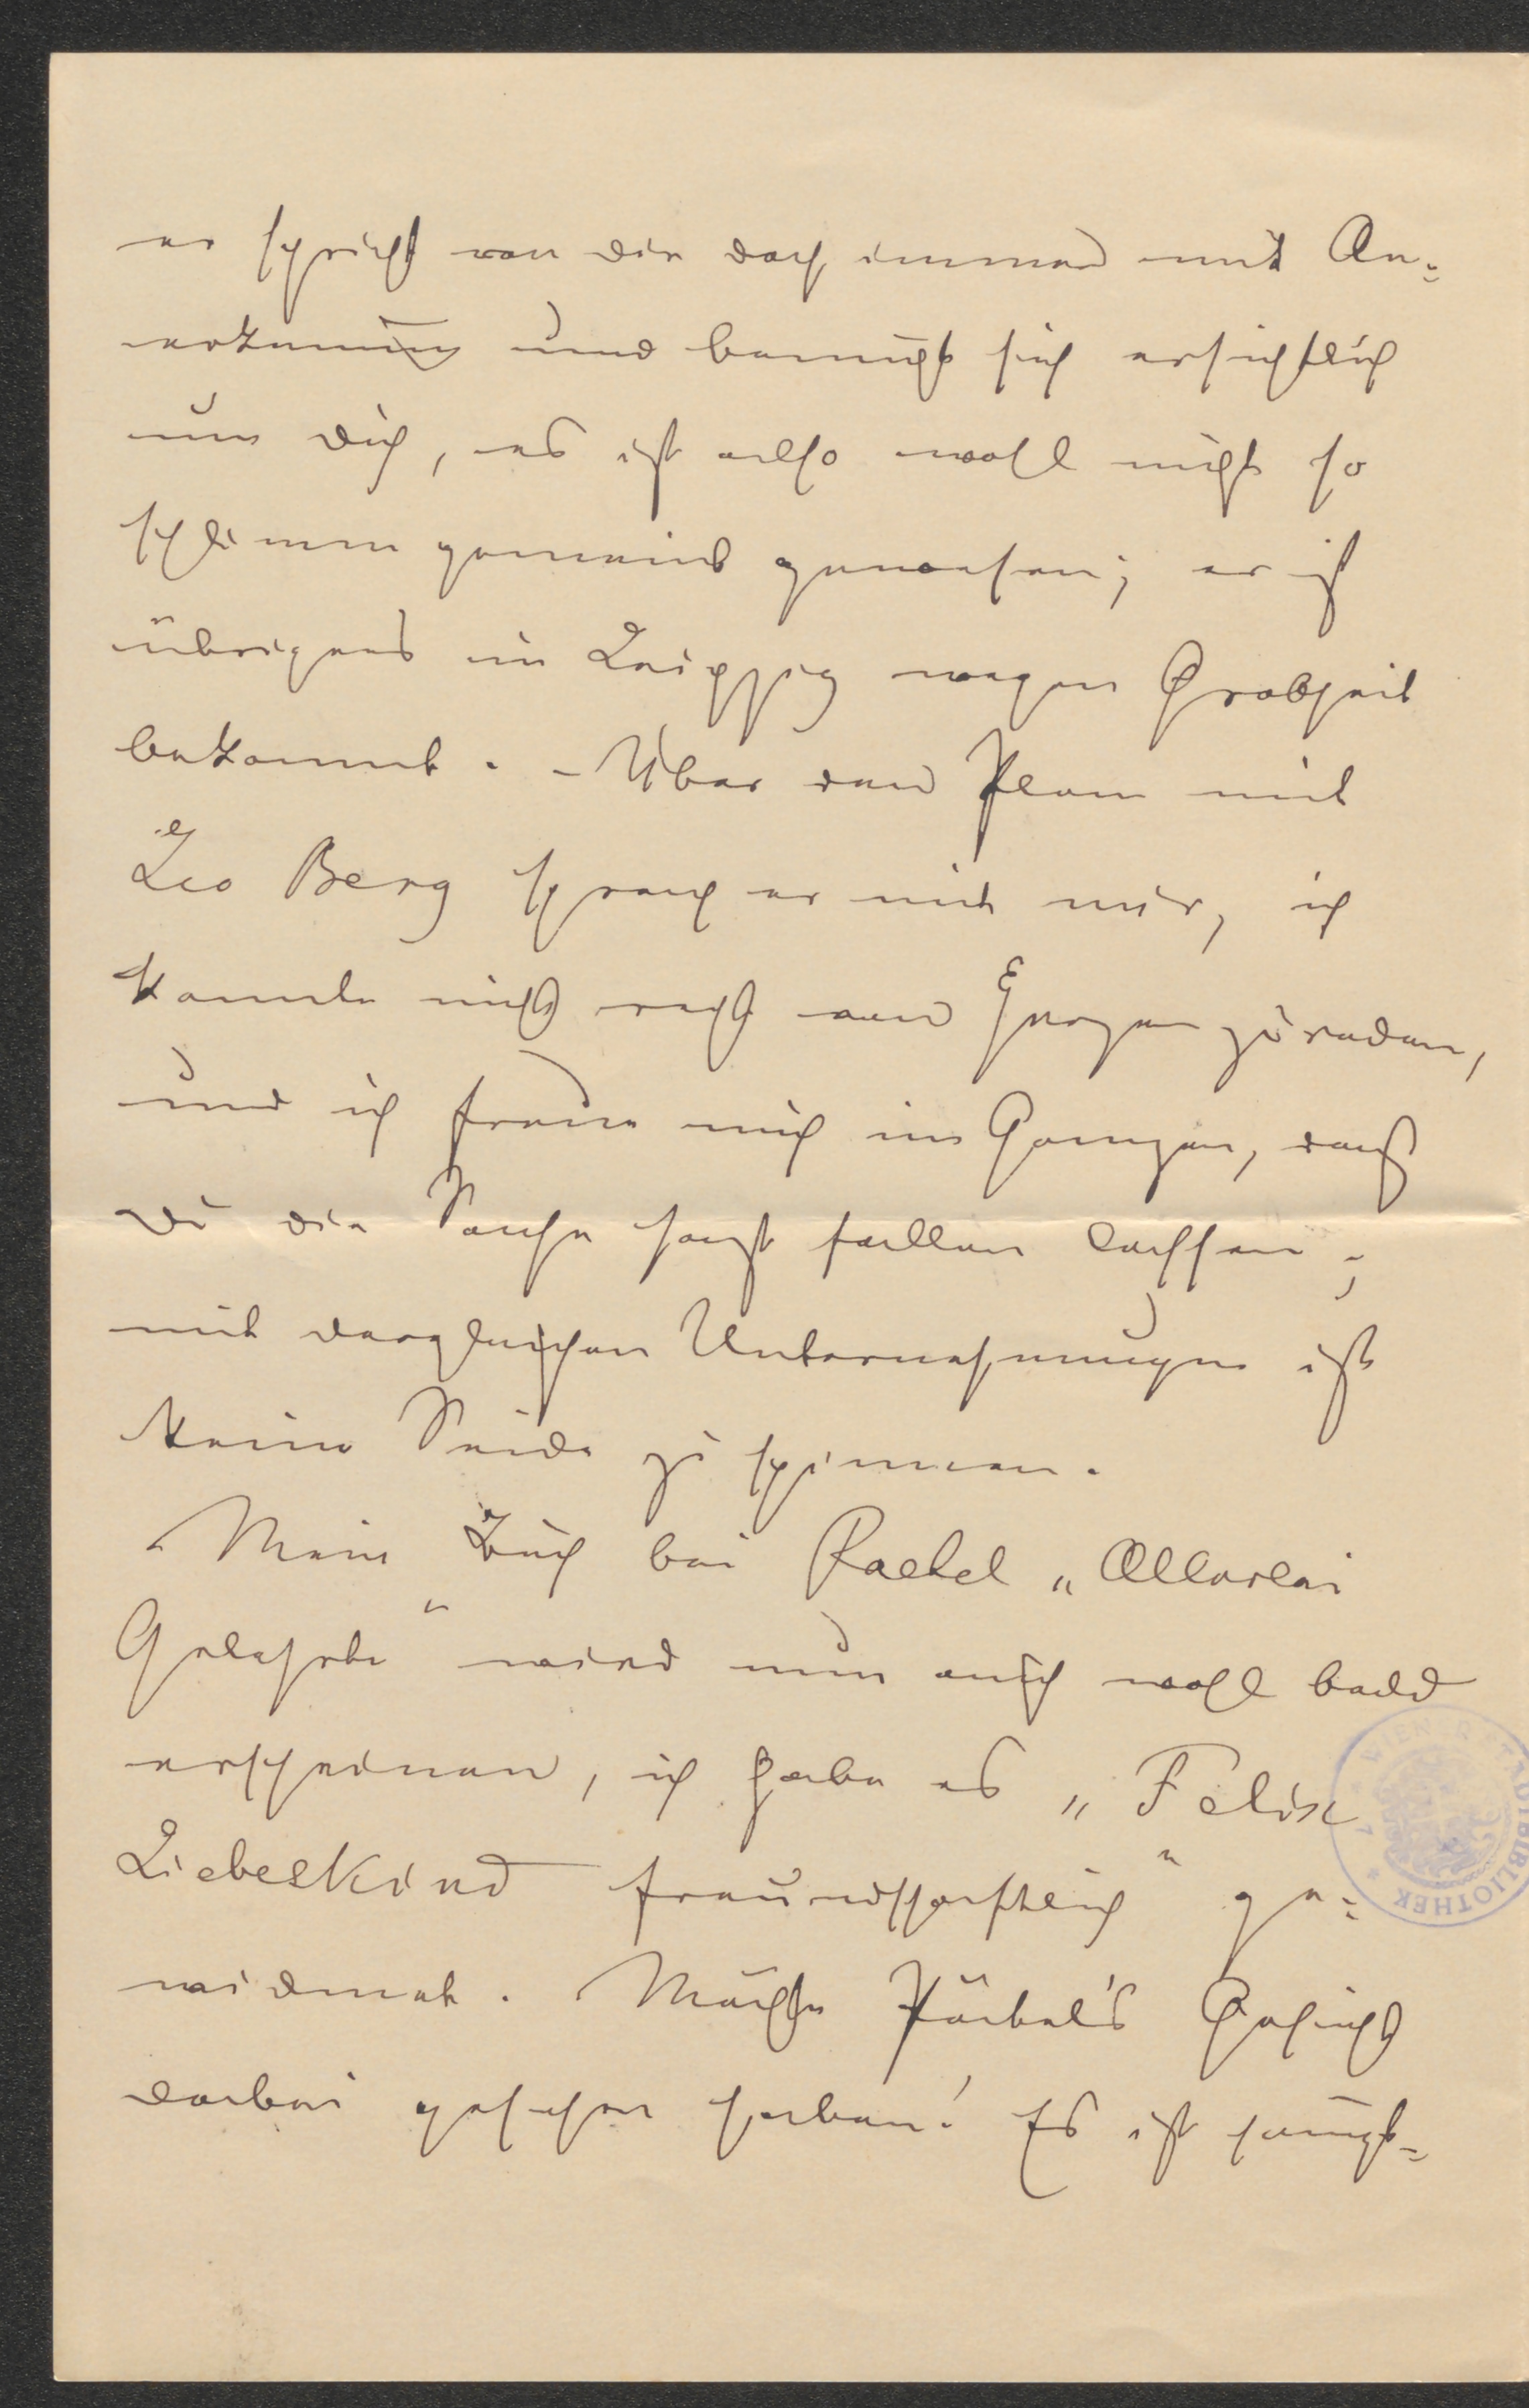 er spricht von dir doch immer mit An-
erkenung und bemüht sich ersichtlich
um dich, es ist also wohl nicht so
schlimm gemeint gewesen; er ist
übrigens in Leipzig wegen Grobheit
bekannt. - Über den Plan mit
Leo Berg sprach er mit mir, ich
konnte nicht recht von Herzen zureden,
und ich freue mich im Ganzen, daß
du die Sache hast fallen lassen;
mit dergleichen Unternehmungen ist
keine Seide zu spinnen.
- Mein Buch bei Paetel „Allerlei
Gelehrte“ wird nun auch wohl bald
erscheinen, ich habe es „Felix
Liebeskind freundschaftlich“ ge-
widmet. Möchte Pätel's Gesicht
dabei gesehen haben! Es ist haupt-
WIEN STADTBIBLIOTHEK